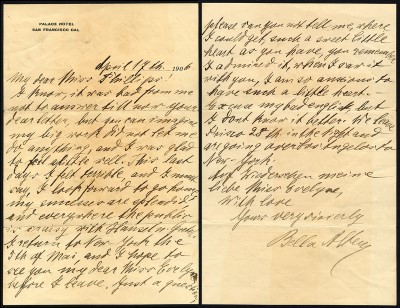 PALACE HOTEL
SAN FRANCISCO CAL
April 17th 1906
My dear Miss
I know, it was bad from me
not to answer till now your
dear letter, but you can imagine
my big work did not let me
do anything, and I was glad
to rest well. This last
days I felt terrible, and I must
say, I look forward to go home
my successes are splendid
and everywhere the public
is crazy with Hansel u. Gretel
I return to New York the
5th of Mai, and I hope to
see you my dear Miss Evelyne
before I leave. Just a question
please can you not tell me, where
I could get, such a sweet little
heart as you have, you remember
I admired it, when I saw it
with you, I am so anxious to
have such a little heart.
Excuse my bad english, but
I dont know it better. We leave
Frisco 28th in the night and
are going over Los Angelos to
New-York.
Auf Wiedersehn meine
liebe Miss Evelyne,
With love
Yours very sincerely
Bella Alten